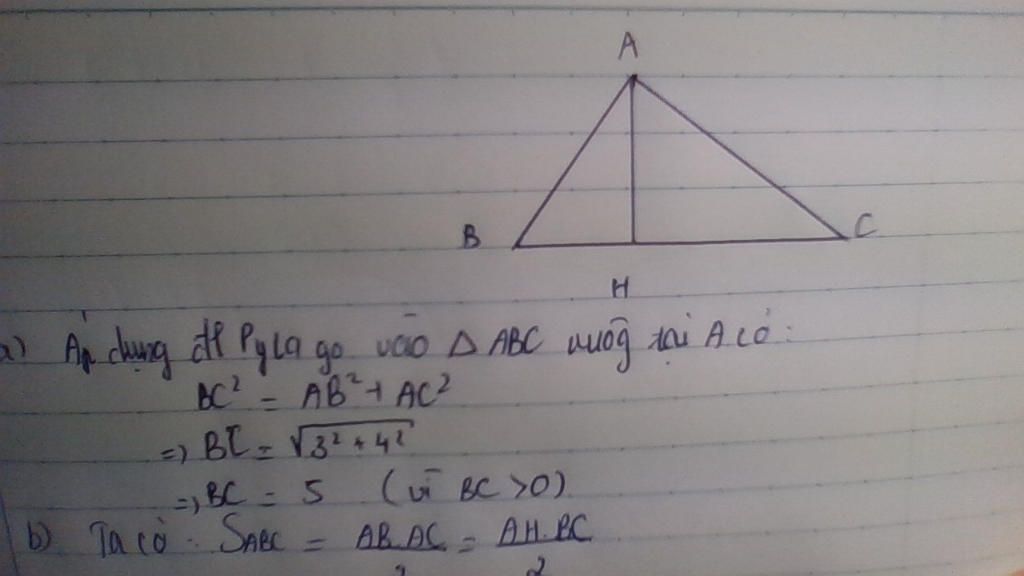 A
B
C
H
a) Áp dụng đl Pytago vào △ABC vuông tại A có:
BC² = AB² + AC²
=> BC = √3² + 4²
=> BC = 5 (vì BC >0)
b) Ta có: SABC = AB.AC = AH.BC
2 2